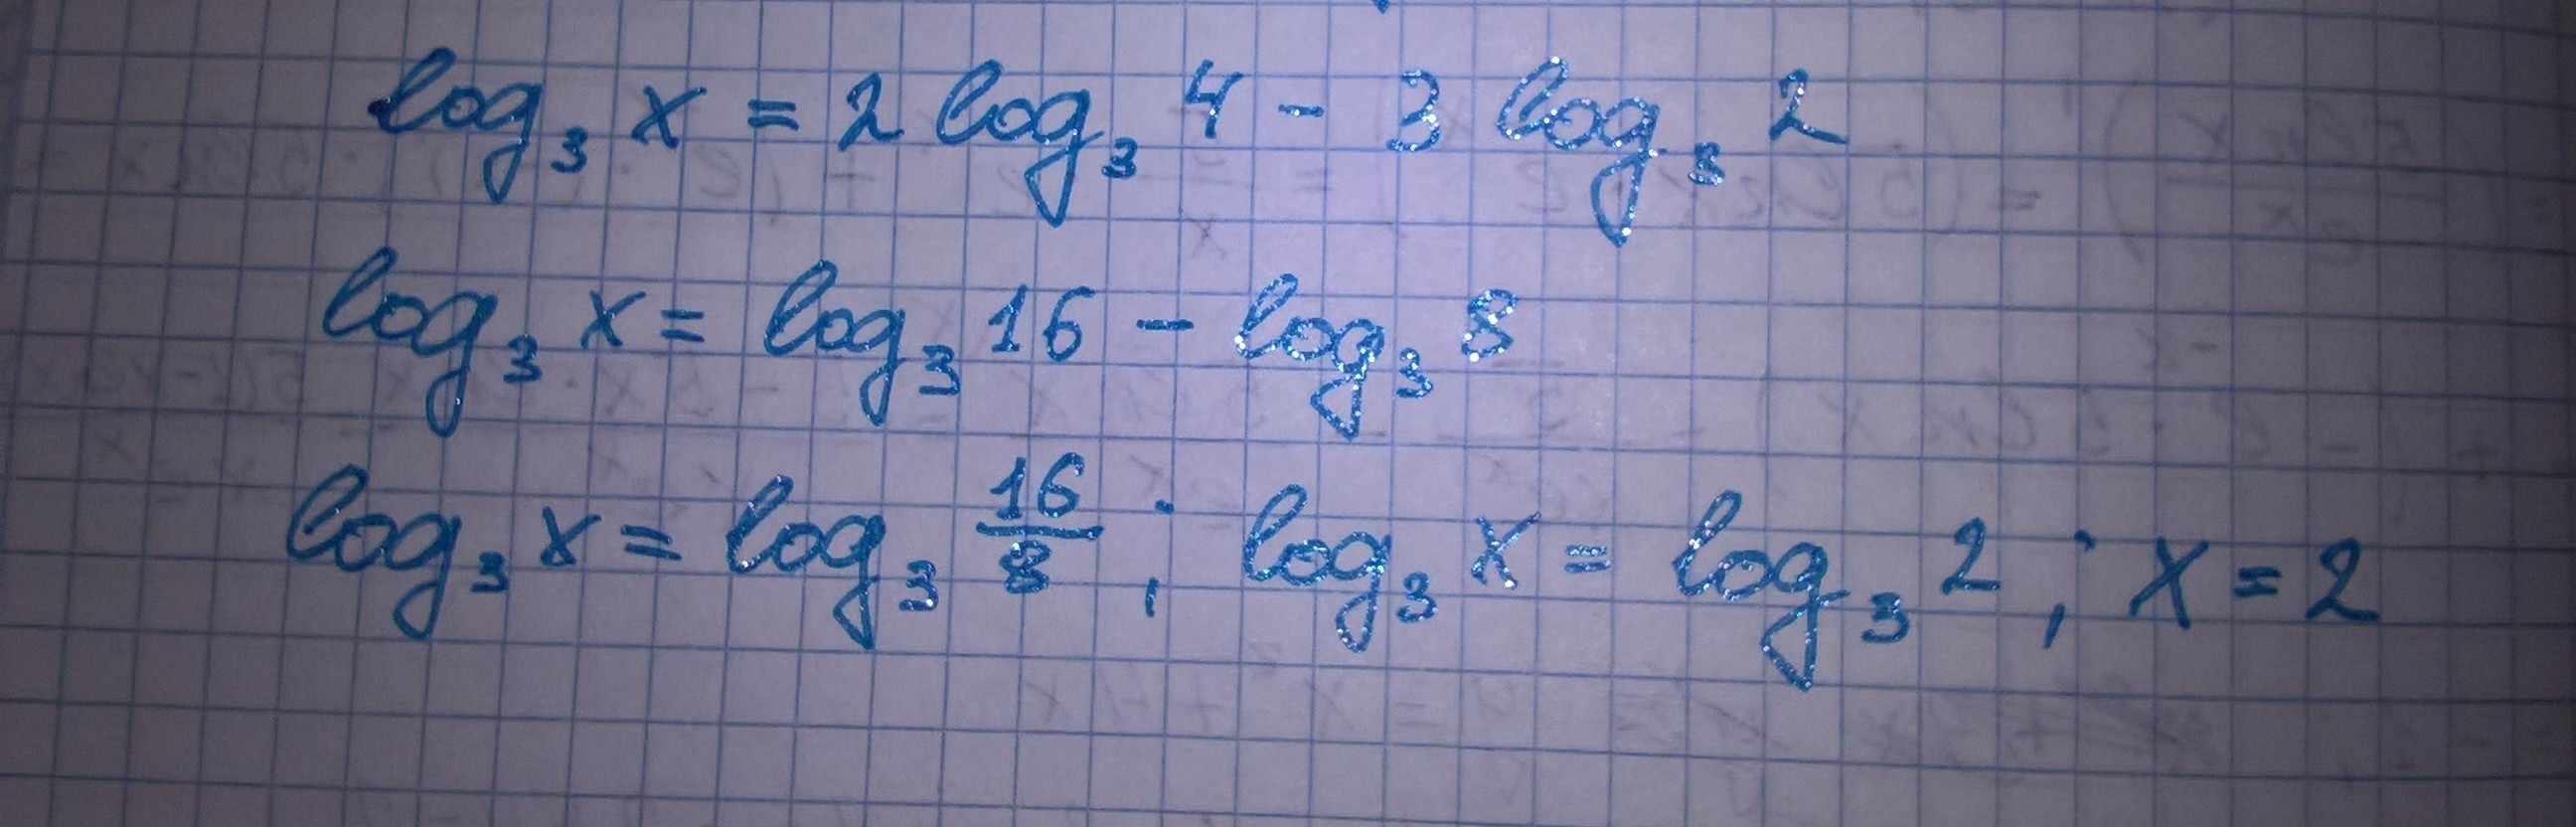 log₃ x = 2 log₃ 4 - 3 log₃ 2
log₃ x = log₃ 16 - log₃ 8
log₃ x = log₃ 16/8 ; log₃ x = log₃ 2 ; x = 2